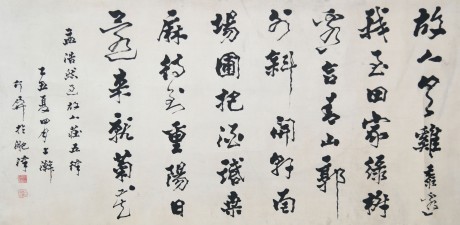 故人具雞黍邀
我至田家綠樹
邊合青山郭
外斜開軒面
場圃把酒話桑
麻待到重陽日
還來就菊花
孟浩然過故人莊五律
丑夏四月
於